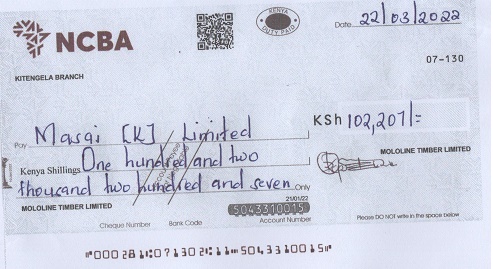 NCBA
KENYA
DUTY PAID
Date 22/03/2022
KITENGELA BRANCH
07-130
Pay Masai [K] Limited
KSh 102,207/=
Kenya Shillings One hundred and two
thousand two hundred and seven Only
MOLOLINE TIMBER LIMITED
MOLOLINE TIMBER LIMITED
21/01/22
5043310015
Cheque Number Bank Code Account Number
Please DO NOT write in the space below
⑈000281⑆071302⑆11⑈5043310015⑈